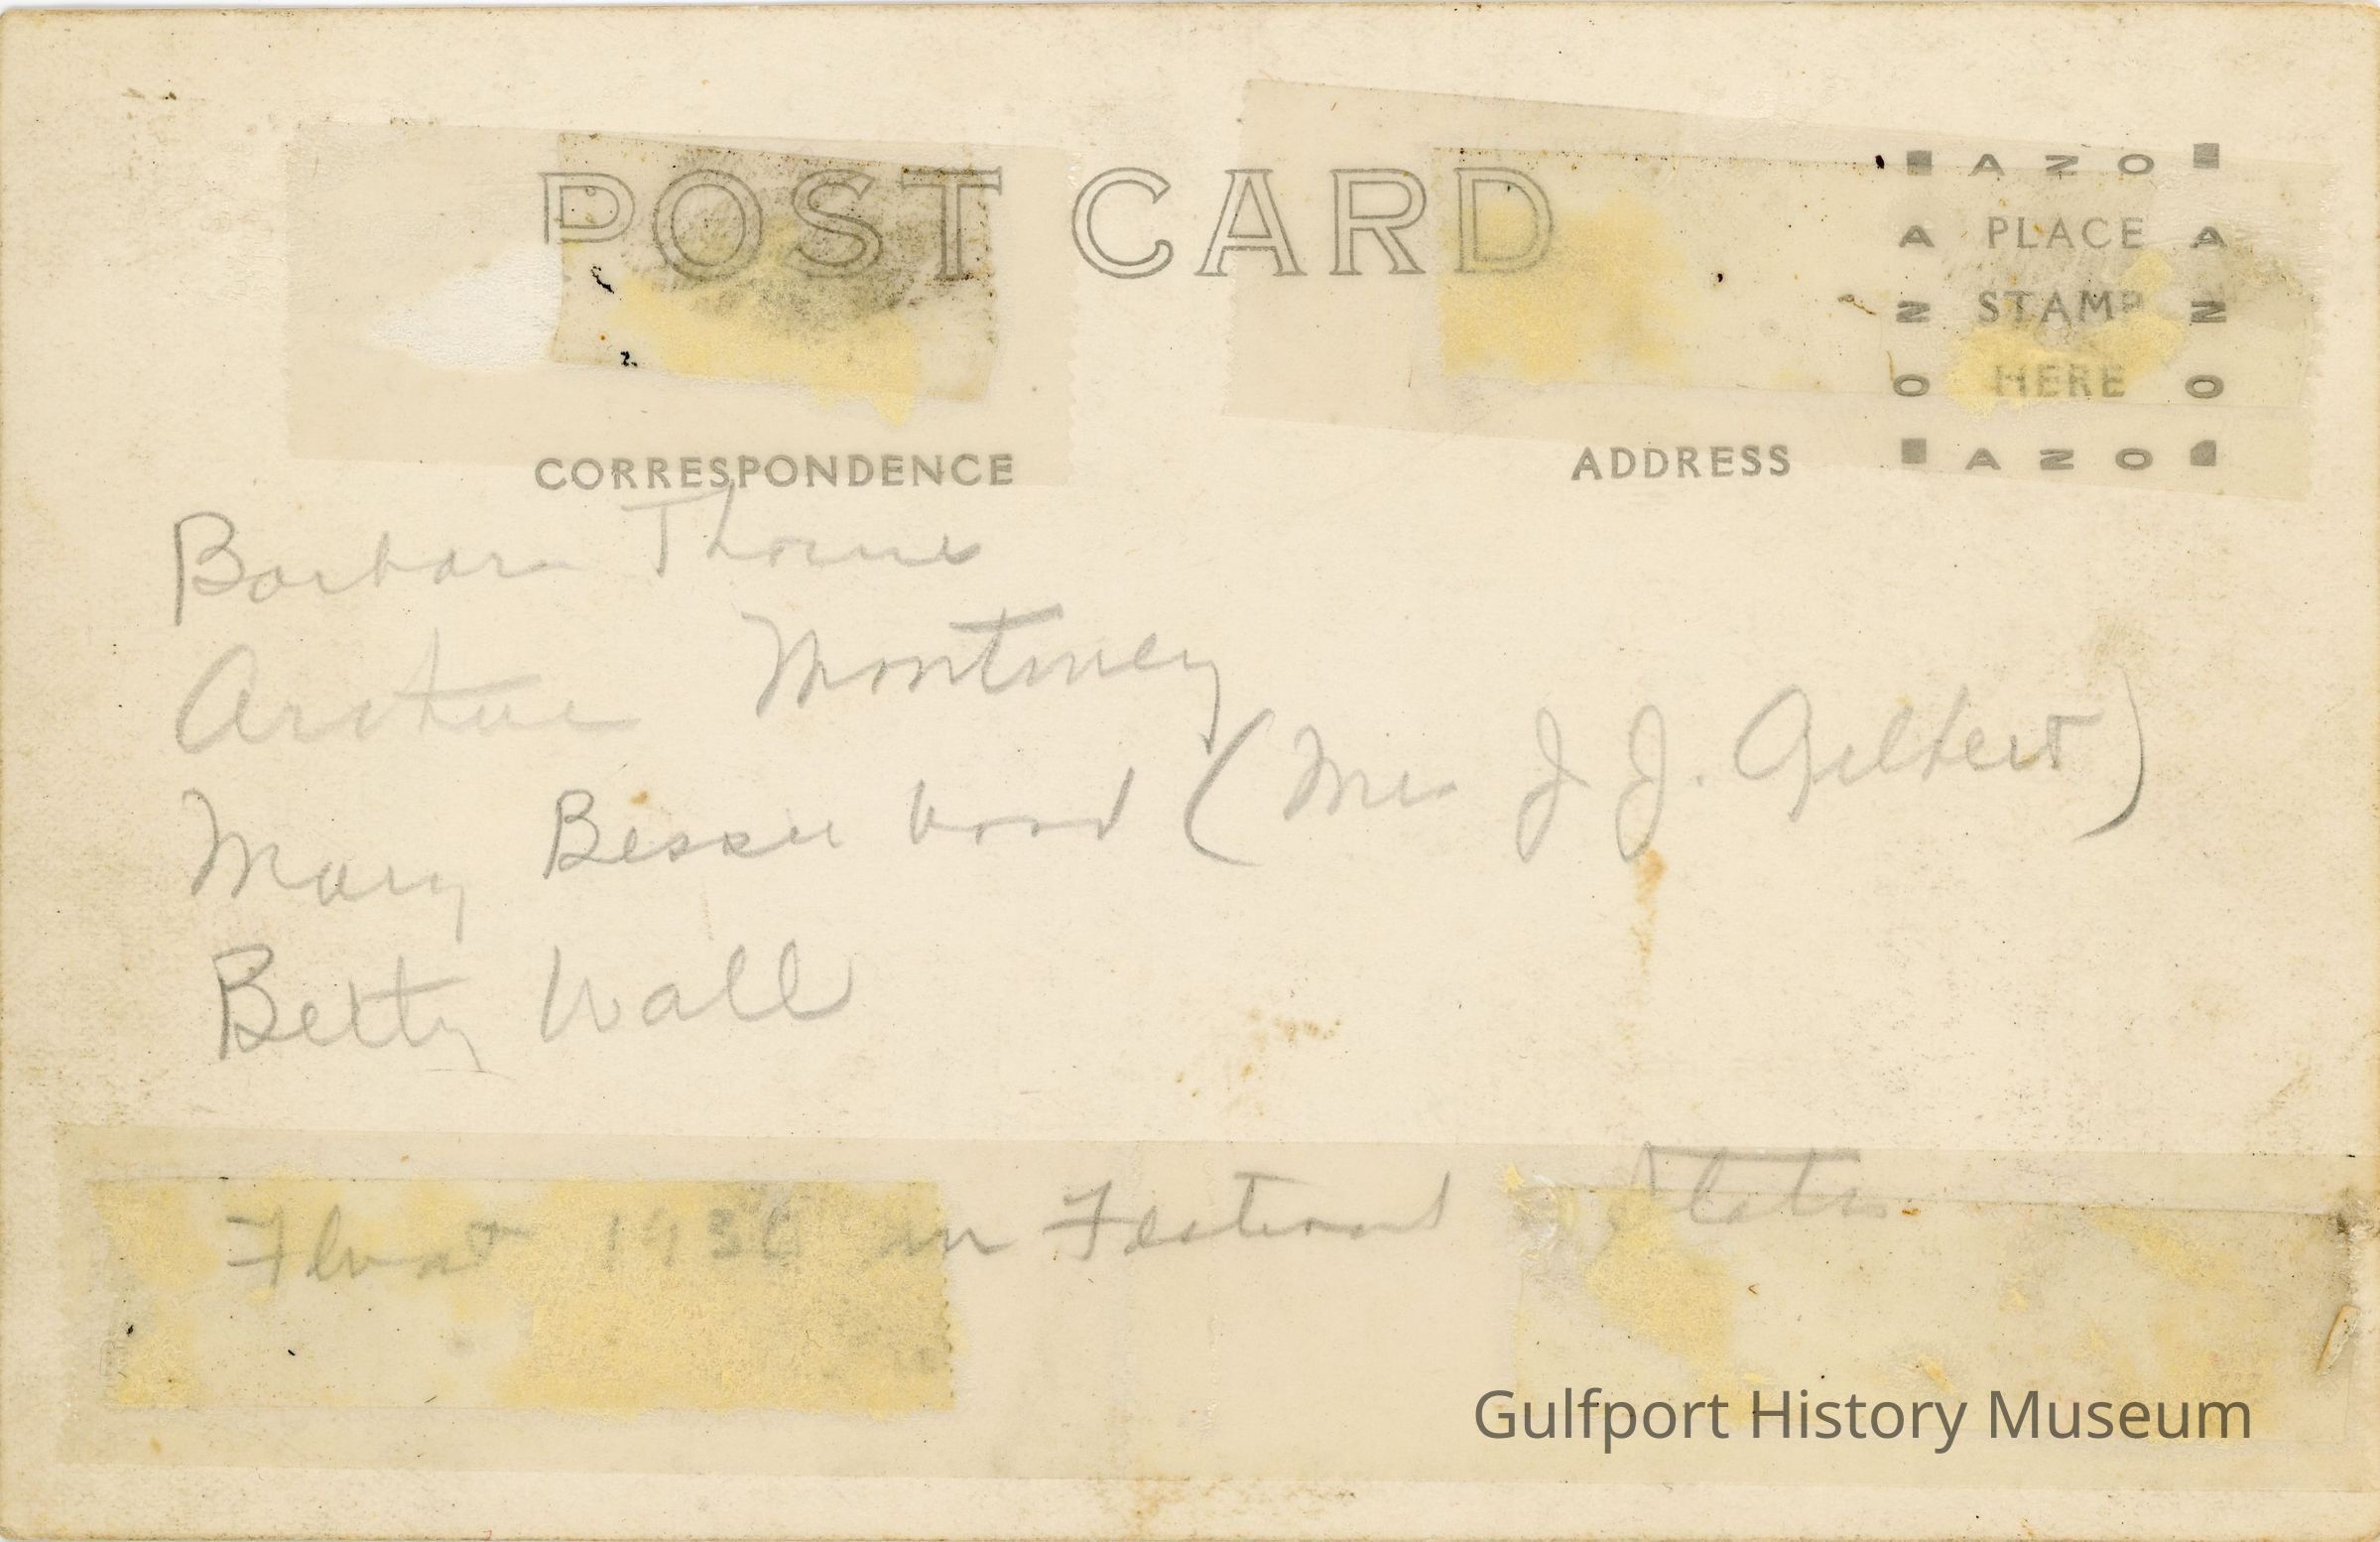 POST CARD
AZO
A PLACE A
N STAMP N
O HERE O
AZO
CORRESPONDENCE ADDRESS
Barbara
Montmey
Mary Bessie Wood (Mrs J J. Gilbert)
Betty Wall
Float 1936 in Festival States
Gulfport History Museum